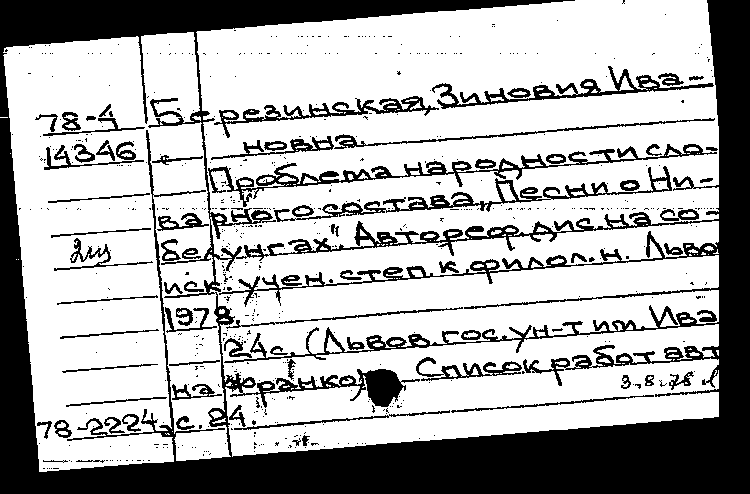 78-4 Березинская, Зиновия Ива-
14346 новна.
Проблема народности сло-
варного состава „Песни о Ни-
белунгах". Автореф. дис. на со-
иск. учен. степ. к. филол. н. Льво
1978.
24с. (Львов. гос. ун-т им. Ива
на Франко). Список работ авт
3.8.78
78-2224 с. 24.